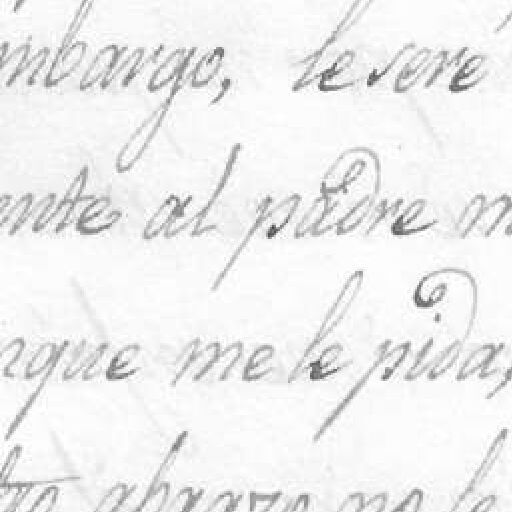 mbargo, le seré
ente al padre m
nque me le pida,
abrazo no le